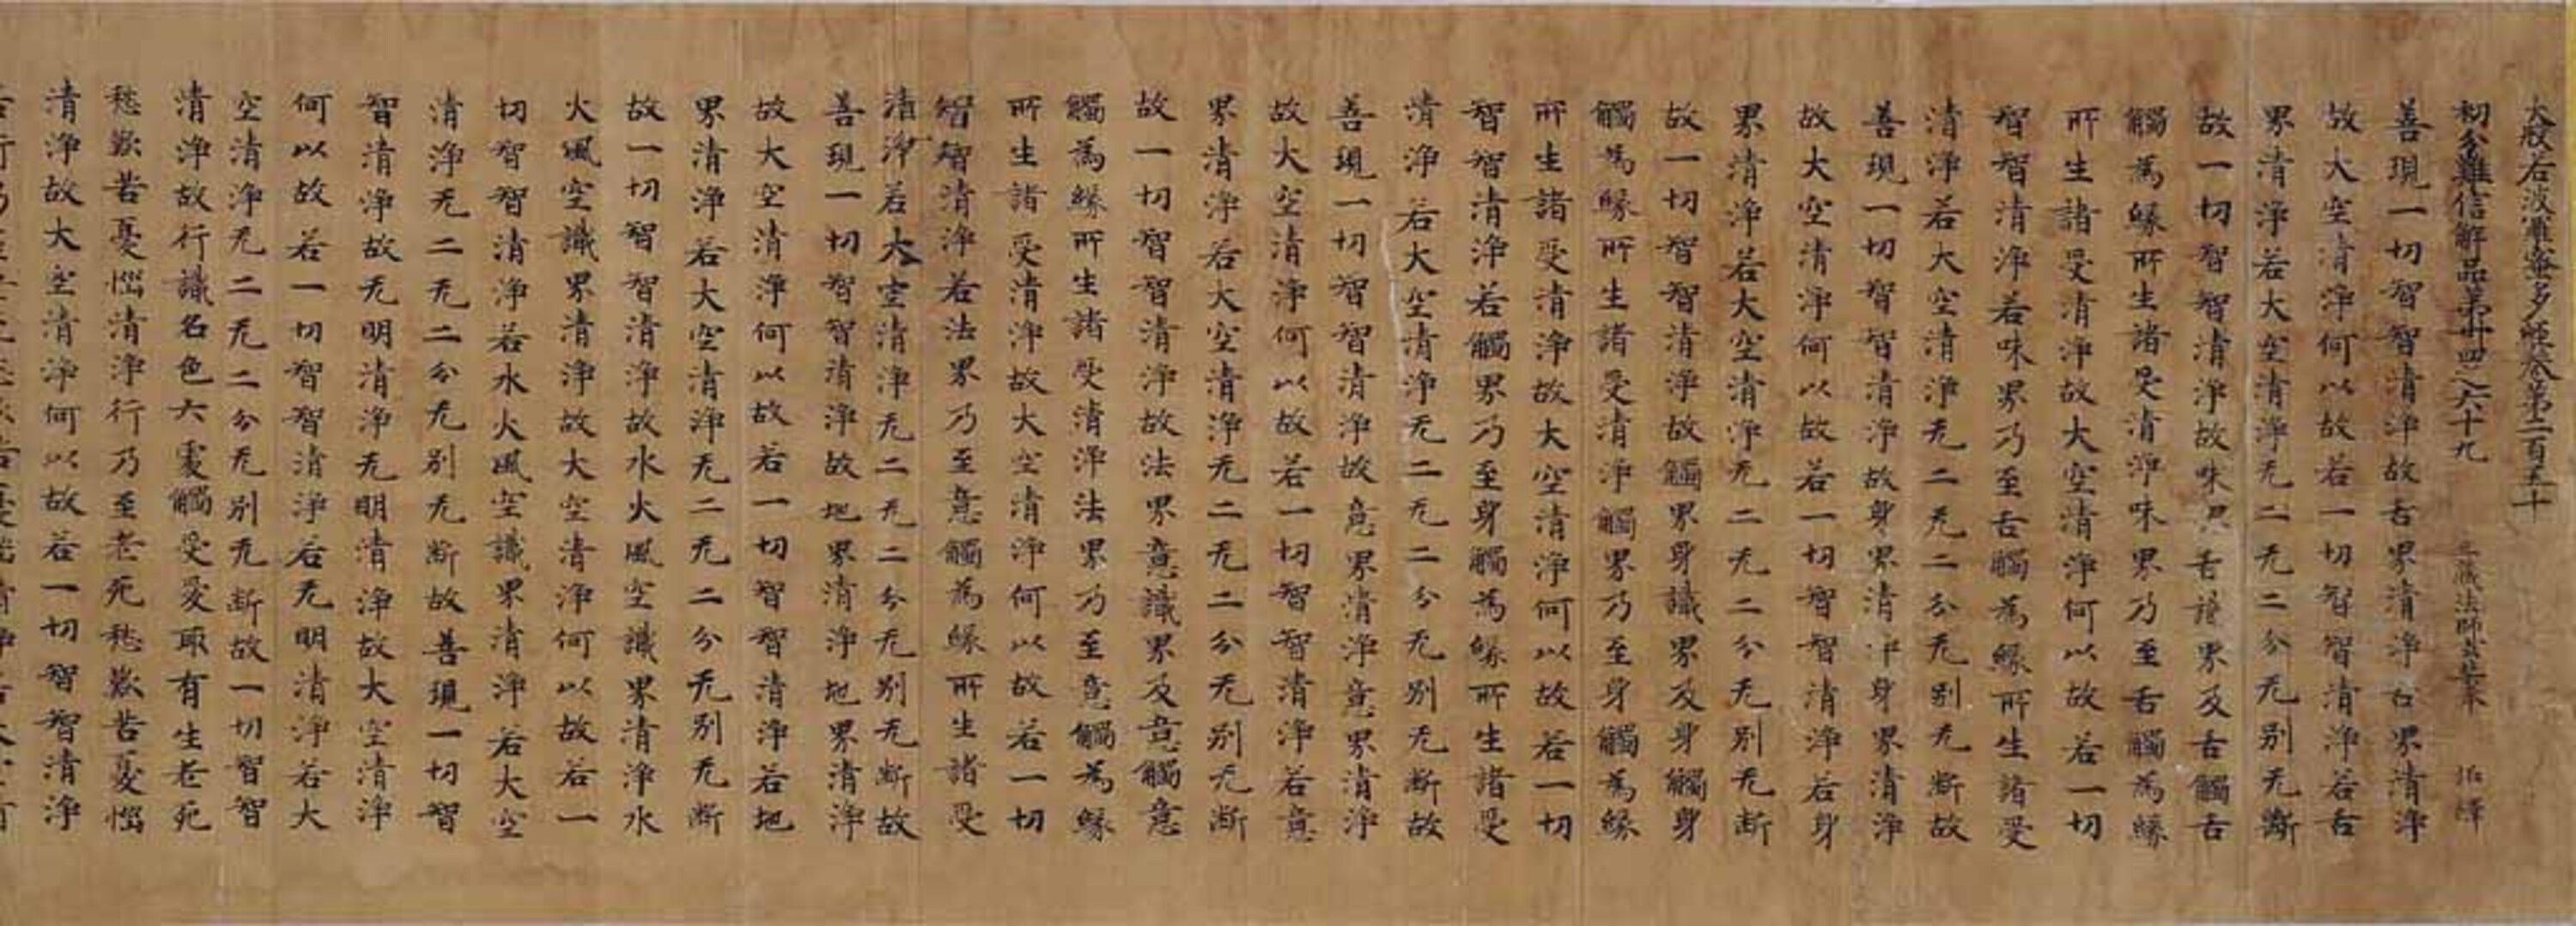 大般若波羅蜜多經卷第二百五十
初分難信解品第卅四之六十九 三藏法師玄奘奉
善現一切智智清淨故舌界清淨舌界清淨
故大空清淨何以故若一切智智清淨若舌
界清淨若大空清淨无二无二分无別无斷
故一切智智清淨故味界舌識界及舌觸舌
觸為緣所生諸受清淨味界乃至舌觸為緣
所生諸受清淨故大空清淨何以故若一切
智智清淨若味界乃至舌觸為緣所生諸受
清淨若大空清淨无二无二分无別无斷故
善現一切智智清淨故身界清淨身界清淨
故大空清淨何以故若一切智智清淨若身
界清淨若大空清淨无二无二分无別无斷
故一切智智清淨故觸界身識界及身觸身
觸為緣所生諸受清淨觸界乃至身觸為緣
所生諸受清淨故大空清淨何以故若一切
智智清淨若觸界乃至身觸為緣所生諸受
清淨若大空清淨无二无二分无別无斷故
善現一切智智清淨故意界清淨意界清淨
故大空清淨何以故若一切智智清淨若意
界清淨若大空清淨无二无二分无別无斷
故一切智智清淨故法界意識界及意觸意
觸為緣所生諸受清淨法界乃至意觸為緣
所生諸受清淨故大空清淨何以故若一切
智智清淨若法界乃至意觸為緣所生諸受
清淨若大空清淨无二无二分无別无斷故
善現一切智智清淨故地界清淨地界清淨
故大空清淨何以故若一切智智清淨若地
界清淨若大空清淨无二无二分无別无斷
故一切智智清淨故水火風空識界清淨水
火風空識界清淨故大空清淨何以故若一
切智智清淨若水火風空識界清淨若大空
清淨无二无二分无別无斷故善現一切智
智清淨故无明清淨无明清淨故大空清淨
何以故若一切智智清淨若无明清淨若大
空清淨无二无二分无別无斷故一切智智
清淨故行識名色六處觸受愛取有生老死
愁歎苦憂惱清淨行乃至老死愁歎苦憂惱
清淨故大空清淨何以故若一切智智清淨